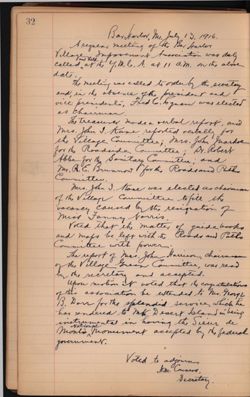 32
Bar Harbor, Me, July 13, 1916.
A regular meeting of the Bar Harbor
Village Improvement Association was duly
called and held at the Y.M.C.A at 11 A.M. on the above
date.
The meeting was called to order by the secretary
and in the absence of the president and
vice presidents, Fred C. Lynam was elected
as chairman.
The treasurer made a verbal report, and
Mrs John I. Kane reported verbally for
the Village Committee, Mrs. John Markoe
for the Roadside Committee, Dr. Robert
Abbe for the Sanitary Committee, and
Mr. R. E. Brunnow for the Roads and Paths
Committee.
Mrs John I. Kane was elected as chairman
of the Village Committee to fill the
vacancy caused by the resignation of
Miss Fanny Norris.
Voted that the matter of guide books
and maps be left with the Roads and Paths
Committee with power.
The report of Mrs. John Harrison, chairman
of the Village Green Committee, was read
by the secretary and accepted.
Upon motion it voted that the congratulations
of this association be extended to Mr. George
B. Dorr for the splendid service which he
has rendered to Mt. Desert Island in being
instrumental in having the Sieur de
Monts National Monument accepted by the federal
government.
Voted to adjourn
Secretary.